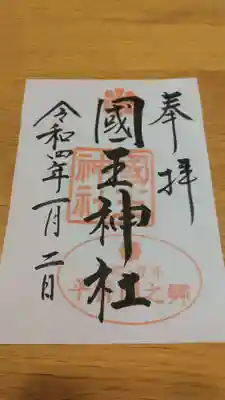 奉拝
國王神社
令和四年一月二日